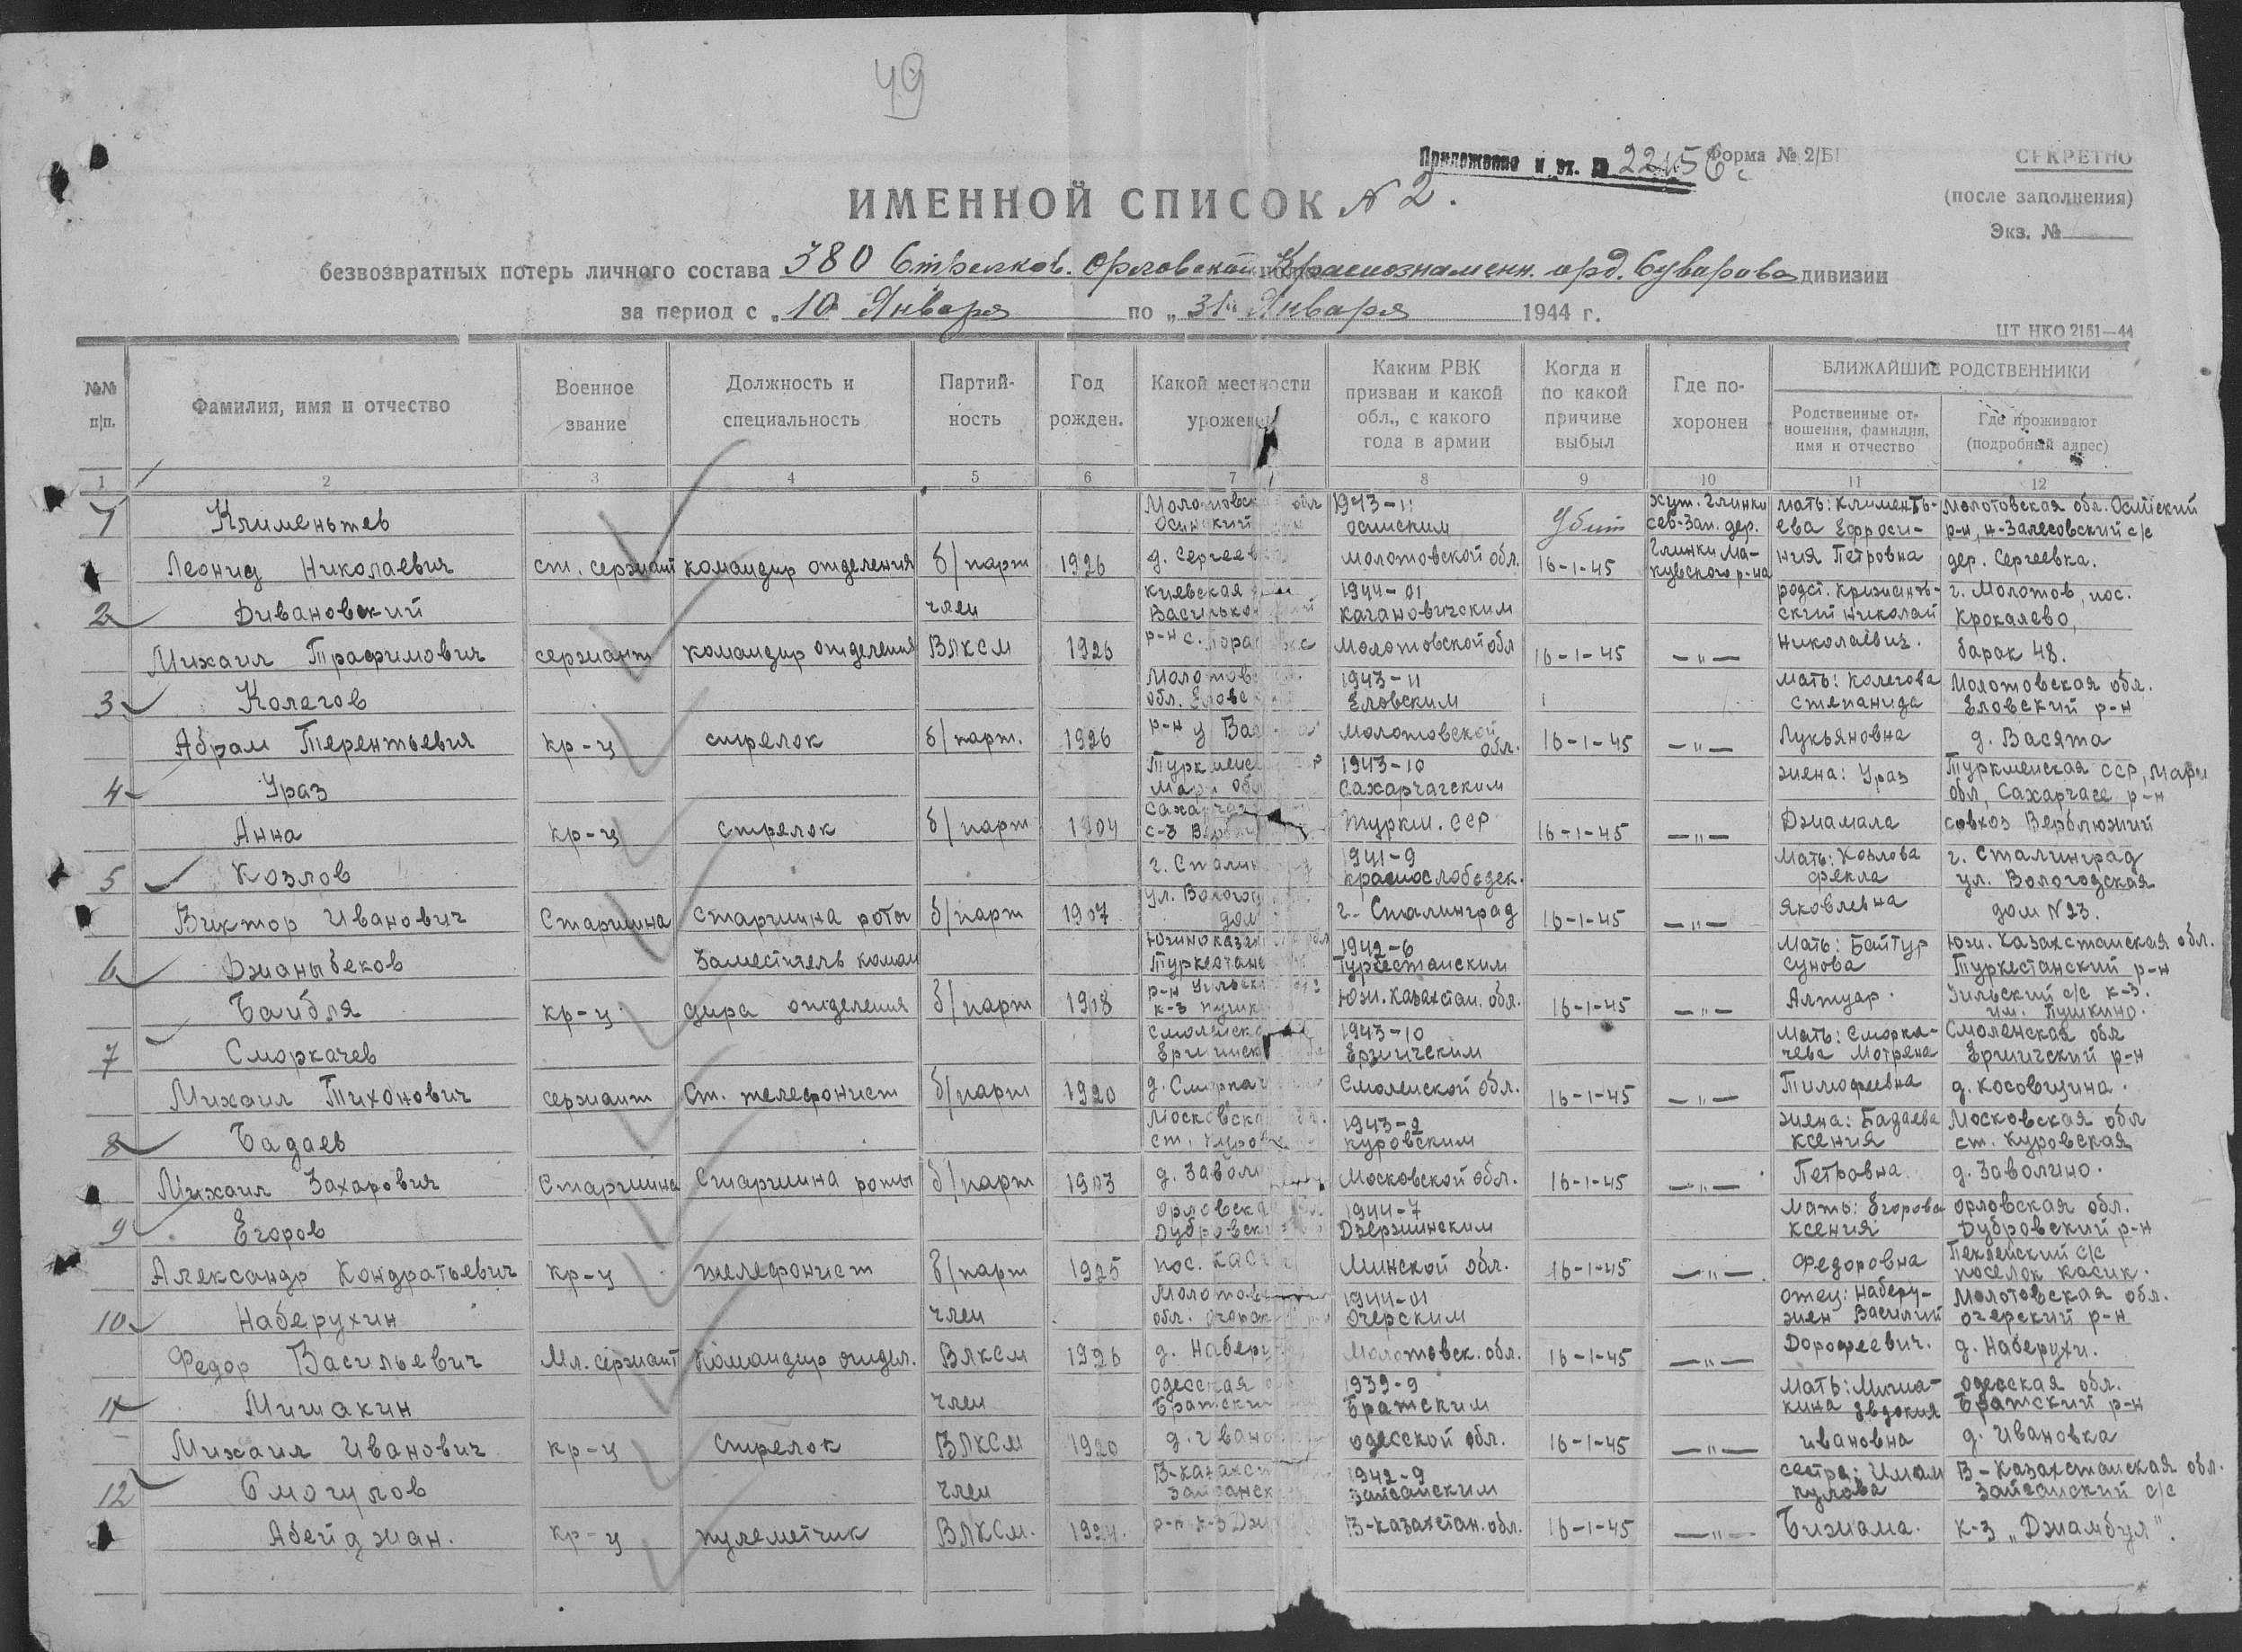 49
Приложение к вх. № 22456с
Форма № 2/БП
СЕКРЕТНО
(после заполнения)
Экз. №
ИМЕННОЙ СПИСОК N 2.
безвозвратных потерь личного состава 380 Стрелков. Орловской Краснознаменн. орд. Суворова дивизии
за период с „10 Января по „31" Января 1944 г.
ЦТ НКО 2151—44
№№ п/п.
Фамилия, имя и отчество
Военное звание
Должность и специальность
Партий-
ность
Год рожден.
Какой местности
уроженец
Каким РВК
призван и какой
обл., с какого
года в армии
Когда и
по какой
причине
выбыл
Где по-
хоронен
БЛИЖАЙШИЕ РОДСТВЕННИКИ
Родственные от-
ношения, фамилия,
имя и отчество
Где проживают
(подробный адрес)
1 2 3 4 5 6 7 8 9 10 11 12
1 Климентьев
Леонид Николаевич
ст. сержант
командир отделения
б/парт
1926
Молотовск обл
Осинский
д. Сергеев
1943-11
осинским
молотовской обл.
Убит
16-1-45
Хут. Глинки
сев-зап. дер.
Глинки Ма-
кувского р-на
мать: Клименть-
ева Ефроси-
ния Петровна
молотовская обл. Осинский
р-н, н-Залесовский с/с
дер. Сергеевка.
2 Дивановский
Михаил Трафимович
сержант
командир отделения
член
ВЛКСМ
1926
Киевская
Васильков
р-н с.
1944-01
Кагановичским
Молотовской обл
16-1-45
—"—
родст.
ский Николай
Николаевич.
г. Молотов, пос.
Крокалево,
барак 48.
3 Колегов
Абрам Терентьевич
кр-ц
стрелок
б/парт.
1926
Молотов
обл. Еловс
р-н д Вас
1943-11
Еловским
Молотовской
обл.
16-1-45
—"—
мать: Колегова
Степанида
Лукьяновна
Молотовская обл.
Еловский р-н
д. Васята
4 Ураз
Анна
кр-ц
стрелок
б/парт
1904
Туркменс
Мари обл
Сахарчаг
с-з
1943-10
Сахарчагским
Туркм. ССР
16-1-45
—"—
жена: Ураз
Джамала
Туркменская ССР, Мари
обл, Сахарчаге р-н
совхоз Верблюжий
5 Козлов
Виктор Иванович
Старшина
Старшина роты
б/парт
1907
г. Сталинград
ул. Волого
дом
1941-9
краснослободск.
г. Сталинград
16-1-45
—"—
Мать: Козлова
Фекла
Яковлевна
г. Сталинград
ул. Вологодская
дом N 23.
6 Джаныбеков
Баибля
кр-ц
Заместитель коман
дира отделения
б/парт
1918
Южноказах
Туркестанс
р-н
к-з Пушк
1942-6
Туркестанским
Юж. Казахстан. обл.
16-1-45
—"—
Мать: Байтур
сунова
Алтуар.
Юж. Казахстанская обл.
Туркестанский р-н
с/с к-з.
им. Пушкино.
7 Сморкачев
Михаил Тихонович
сержант
Ст. телефонист
б/парт
1920
Смоленска
Ершичск
д. Сморкач
1943-10
Ершичским
Смоленской обл.
16-1-45
—"—
Мать: Сморка-
чева Мотрена
Тимофеевна
Смоленская обл
Ершичский р-н
д. Косовщина.
8 Бадаев
Михаил Захарович
Старшина
Старшина роты
б/парт
1903
Московска
ст. Куров
д. Заволи
1943-2
куровским
Московской обл.
16-1-45
—"—
жена: Бадаева
Ксения
Петровна
Московская обл
ст. Куровская
д. Заволино.
9 Егоров
Александр Кондратьевич
кр-ц
телефонист
б/парт
1925
Орловска
Дубровск
пос. Каси
1944-7
Дзержинским
Минской обл.
16-1-45
—"—
мать: Егорова
Ксения
Федоровна
Орловская обл.
Дубровский р-н
Пеклейский с/с
поселок Касик.
10 Наберухин
Федор Васильевич
Мл. сержант
Командир отдел.
член
ВЛКСМ
1926
Молотов
обл.
д. Наберу
1944-01
Очерским
Молотовск. обл.
16-1-45
—"—
отец: Наберу-
хин Василий
Дорофеевич.
Молотовская обл.
Очерский р-н
д. Наберухи.
11 Мишакин
Михаил Иванович
кр-ц
стрелок
член
ВЛКСМ
1920
Одесская
Братский
д. Ивано
1939-9
Братским
Одесской обл.
16-1-45
—"—
Мать: Миша-
кина Евдокия
Ивановна
Одесская обл.
Братский р-н
д. Ивановка
12 Смогулов
Абейджан.
кр-ц
пулеметчик
член
ВЛКСМ.
1924.
В-Казахст
Зайсанск
р-н к-з Джа
1942-9
Зайсанским
В-Казахстан. обл.
16-1-45
—"—
сестра: Имам
кулова
Бижама.
В-Казахстанская обл.
Зайсанский с/с
к-з „Джамбул".